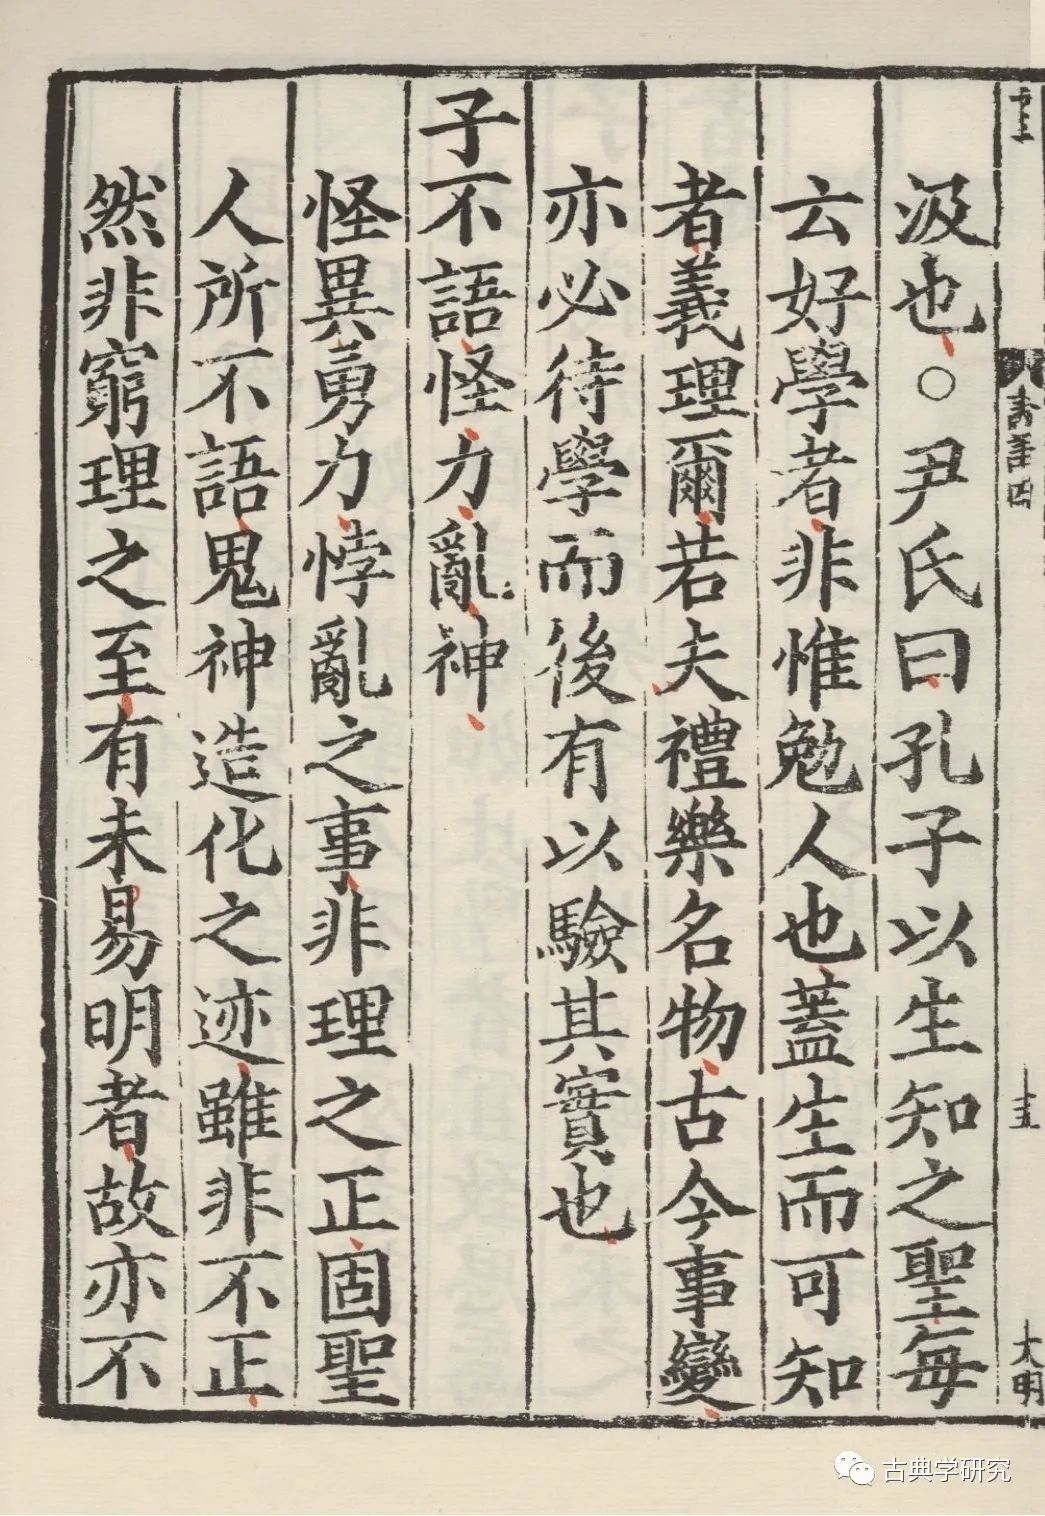 汲也○尹氏曰孔子以生知之聖每
云好學者非惟勉人也蓋生而可知
者義理爾若夫禮樂名物古今事變
亦必待學而後有以驗其實也
子不語怪力亂神
怪異勇力悖亂之事非理之正固聖
人所不語鬼神造化之迹雖非不正
然非窮理之至有未易明者故亦不
十五
大明
古典学研究